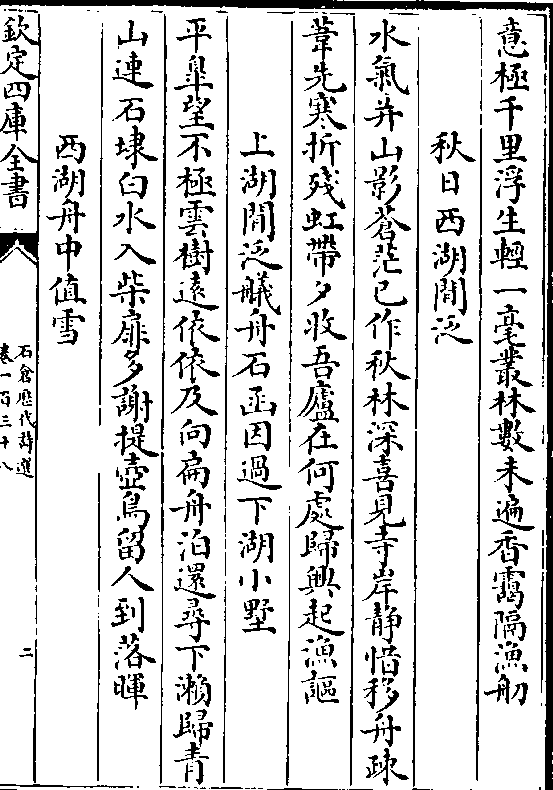 意極千里浮生輕一毫叢林數未遍香靄隔漁舠
秋日西湖閒泛
水氣并山影蒼茫已作秋林深喜見寺岸静惜移舟疎
葦先寒折殘虹帶夕收吾廬在何處歸興起漁謳
上湖閒泛艤舟石函因過下湖小墅
平臯望不極雲樹逺依依及向扁舟泊還尋下瀨歸青
山連石埭白水入柴扉多謝提壺鳥留人到落暉
西湖舟中值雪
欽定四庫全書
石倉歴代詩選
卷一百三十八
二